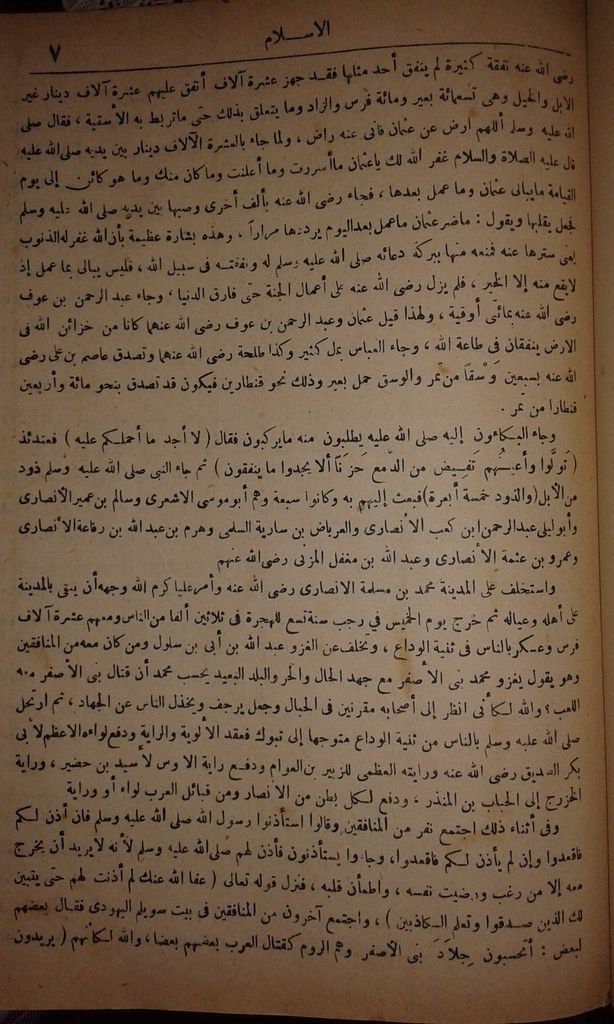 الاسلام
٧
رضى الله عنه نفقة كثيرة لم ينفق أحد مثلها فقد جهز عشرة آلاف أنفق عليهم عشرة آلاف دينار غير
الابل والخيل وهى تسعمائة بعير ومائة فرس والزاد وما يتعلق بذلك حتى ماتربط به الأسقية ، فقال صلى
الله عليه وسلم أللهم ارض عن عثمان فانى عنه راض ، ولما جاء بالعشرة الآلاف دينار بين يديه صلى الله عليه
قال عليه الصلاة والسلام غفر الله لك ياعثمان ماأسررت وما أعلنت وماكان منك وما هو كائن إلى يوم
القيامة مايبالى عثمان وما عمل بعدها ، فجاء رضى الله عنه بألف أخرى وصبها بين يديه صلى الله عليه وسلم
لجعل يقلبها ويقول : ماضر عثمان ماعمل بعد اليوم يرددها مراراً ، وهذه بشارة عظيمة بأن الله غفر له الذنوب
يعنى سترها عنه فمنعه منها ببركة دعائه صلى الله عليه وسلم له ونفقته فى سبيل الله ، فليس يبالى بما عمل إذ
لايقع منه إلا الخير ، فلم يزل رضى الله عنه على أعمال الجنة حتى فارق الدنيا ، وجاء عبد الرحمن بن عوف
رضى الله عنه بمائتى أوقية ، ولهذا قيل عثمان وعبد الرحمن بن عوف رضى الله عنهما كانا من خزائن الله فى
الارض ينفقان فى طاعة الله ، وجاء العباس بمال كثير وكذا طلحة رضى الله عنهما وتصدق عاصم بن على رضى
الله عنه بسبعين وَسْقا من تمر والوسق حمل بعير وذلك نحو قنطارين فيكون قد تصدق بنحو مائة وأربعين
قنطارا من تمر .
وجاء البكاءون إليه صلى الله عليه يطلبون منه مايركبون فقال ( لا أجد ما أحملكم عليه ) فعندئذ
( تَولَّوا وأعينُهم تَفيض من الدَّمع حزَناً ألا يجدوا ما ينفقون ) ثم جاء النبى صلى الله عليه وسلم ذود
من الأبل (والذود خمسة أبعرة) فبعث إليهم به وكانوا سبعة وهم أبو موسى الاشعرى وسالم بن عمير الأنصارى
وأبو ليلى عبد الرحمن ابن كعب الأنصارى والعرباض بن سارية السلمى وهرم بن عبد الله بن رفاعة الأنصارى
وعمرو بن عثمة الأنصارى وعبد الله بن مغفل المزنى رضى الله عنهم
واستخلف على المدينة محمد بن مسلمة الانصارى رضى الله عنه وأمر عليا كرم الله وجهه أن يبقى بالمدينة
على أهله وعياله ثم خرج يوم الخميس فى رجب سنة تسع للهجرة فى ثلاثين ألفا من الناس ومعهم عشرة آلاف
فرس وعسكر بالناس فى ثنية الوداع ، وتخلف عن الغزو عبد الله بن أبى بن سلول ومن كان معه من المنافقين
وهو يقول يغزو محمد بنى الأصفر مع جهد الحال والحر والبلد البعيد يحسب محمد أن قتال بنى الأصفر معه
اللعب ؟ والله لكأنى انظر إلى أصحابه مقرنين فى الحبال وجعل يرجف ويخذل الناس عن الجهاد ، ثم ارتحل
صلى الله عليه وسلم بالناس من ثنية الوداع متوجها إلى تبوك فعقد الألوية والراية ودفع لواءه الاعظم لأبى
بكر الصديق رضى الله عنه ورايته العظمى للزبير بن العوام ودفع راية الاوس لأسيد بن حضير ، وراية
الخزرج إلى الحباب بن المنذر ، ودفع لكل بطن من الأنصار ومن قبائل العرب لواء أو راية
وفى أثناء ذلك اجتمع نفر من المنافقين وقالوا استأذنوا رسول الله صلى الله عليه وسلم فان أذن لكم
فاقعدوا وإن لم يأذن لكم فاقعدوا، وجاءوا يستأذنون فأذن لهم صلى الله عليه وسلم لأنه لا يريد أن يخرج
معه إلا من رغب ورضيت نفسه ، واطمأن قلبه ، فنزل قوله تعالى ( عفا الله عنك لم أذنت لهم حتى يتبين
لك الذين صدقوا وتعلم الكاذبين ) ، واجتمع آخرون من المنافقين فى بيت سويلم اليهودى فقال بعضهم
لبعض : أتحسبون جِلاَدَ بنى الأصفر وهم الروم كقتال العرب بعضهم بعضا، والله لكأنهم ( يريدون